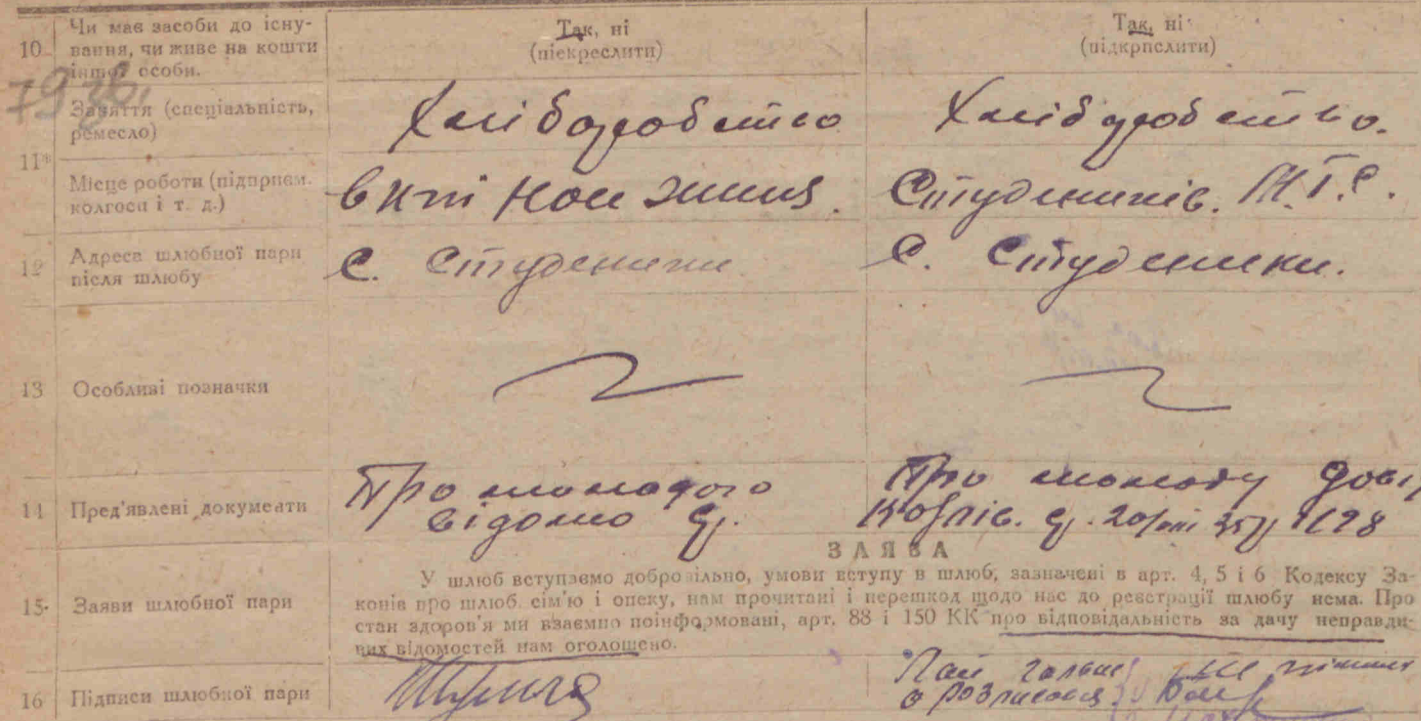 10 Чи має засоби до існу-
вання, чи живе на кошти
іншої особи.
Так, ні
(піекреслити)
Так, ні
(підкрпслити)
79 зв.
11* Заняття (спеціальність,
ремесло)
Хлібороб ство
Хлібороб ство.
Місце роботи (підприєм.
колгосп і т. д.)
Студеників. М.Т.С.
12 Адреса шлюбної пари
після шлюбу
с. Студеники
с. Студеники.
13 Особливі позначки
14 Пред'явлені документи
Про молодого
відомо
Про молоду
15 Заяви шлюбної пари
ЗАЯВА
У шлюб вступаємо добровільно, умови вступу в шлюб, зазначені в арт. 4, 5 і 6 Кодексу За-
конів про шлюб сім'ю і опеку, нам прочитані і перешкод щодо нас до реєстрації шлюбу нема. Про
стан здоров'я ми взаємно поінформовані, арт. 88 і 150 КК про відповідальність за дачу неправди-
вих відомостей нам оголошено.
16 Підписи шлюбної пари